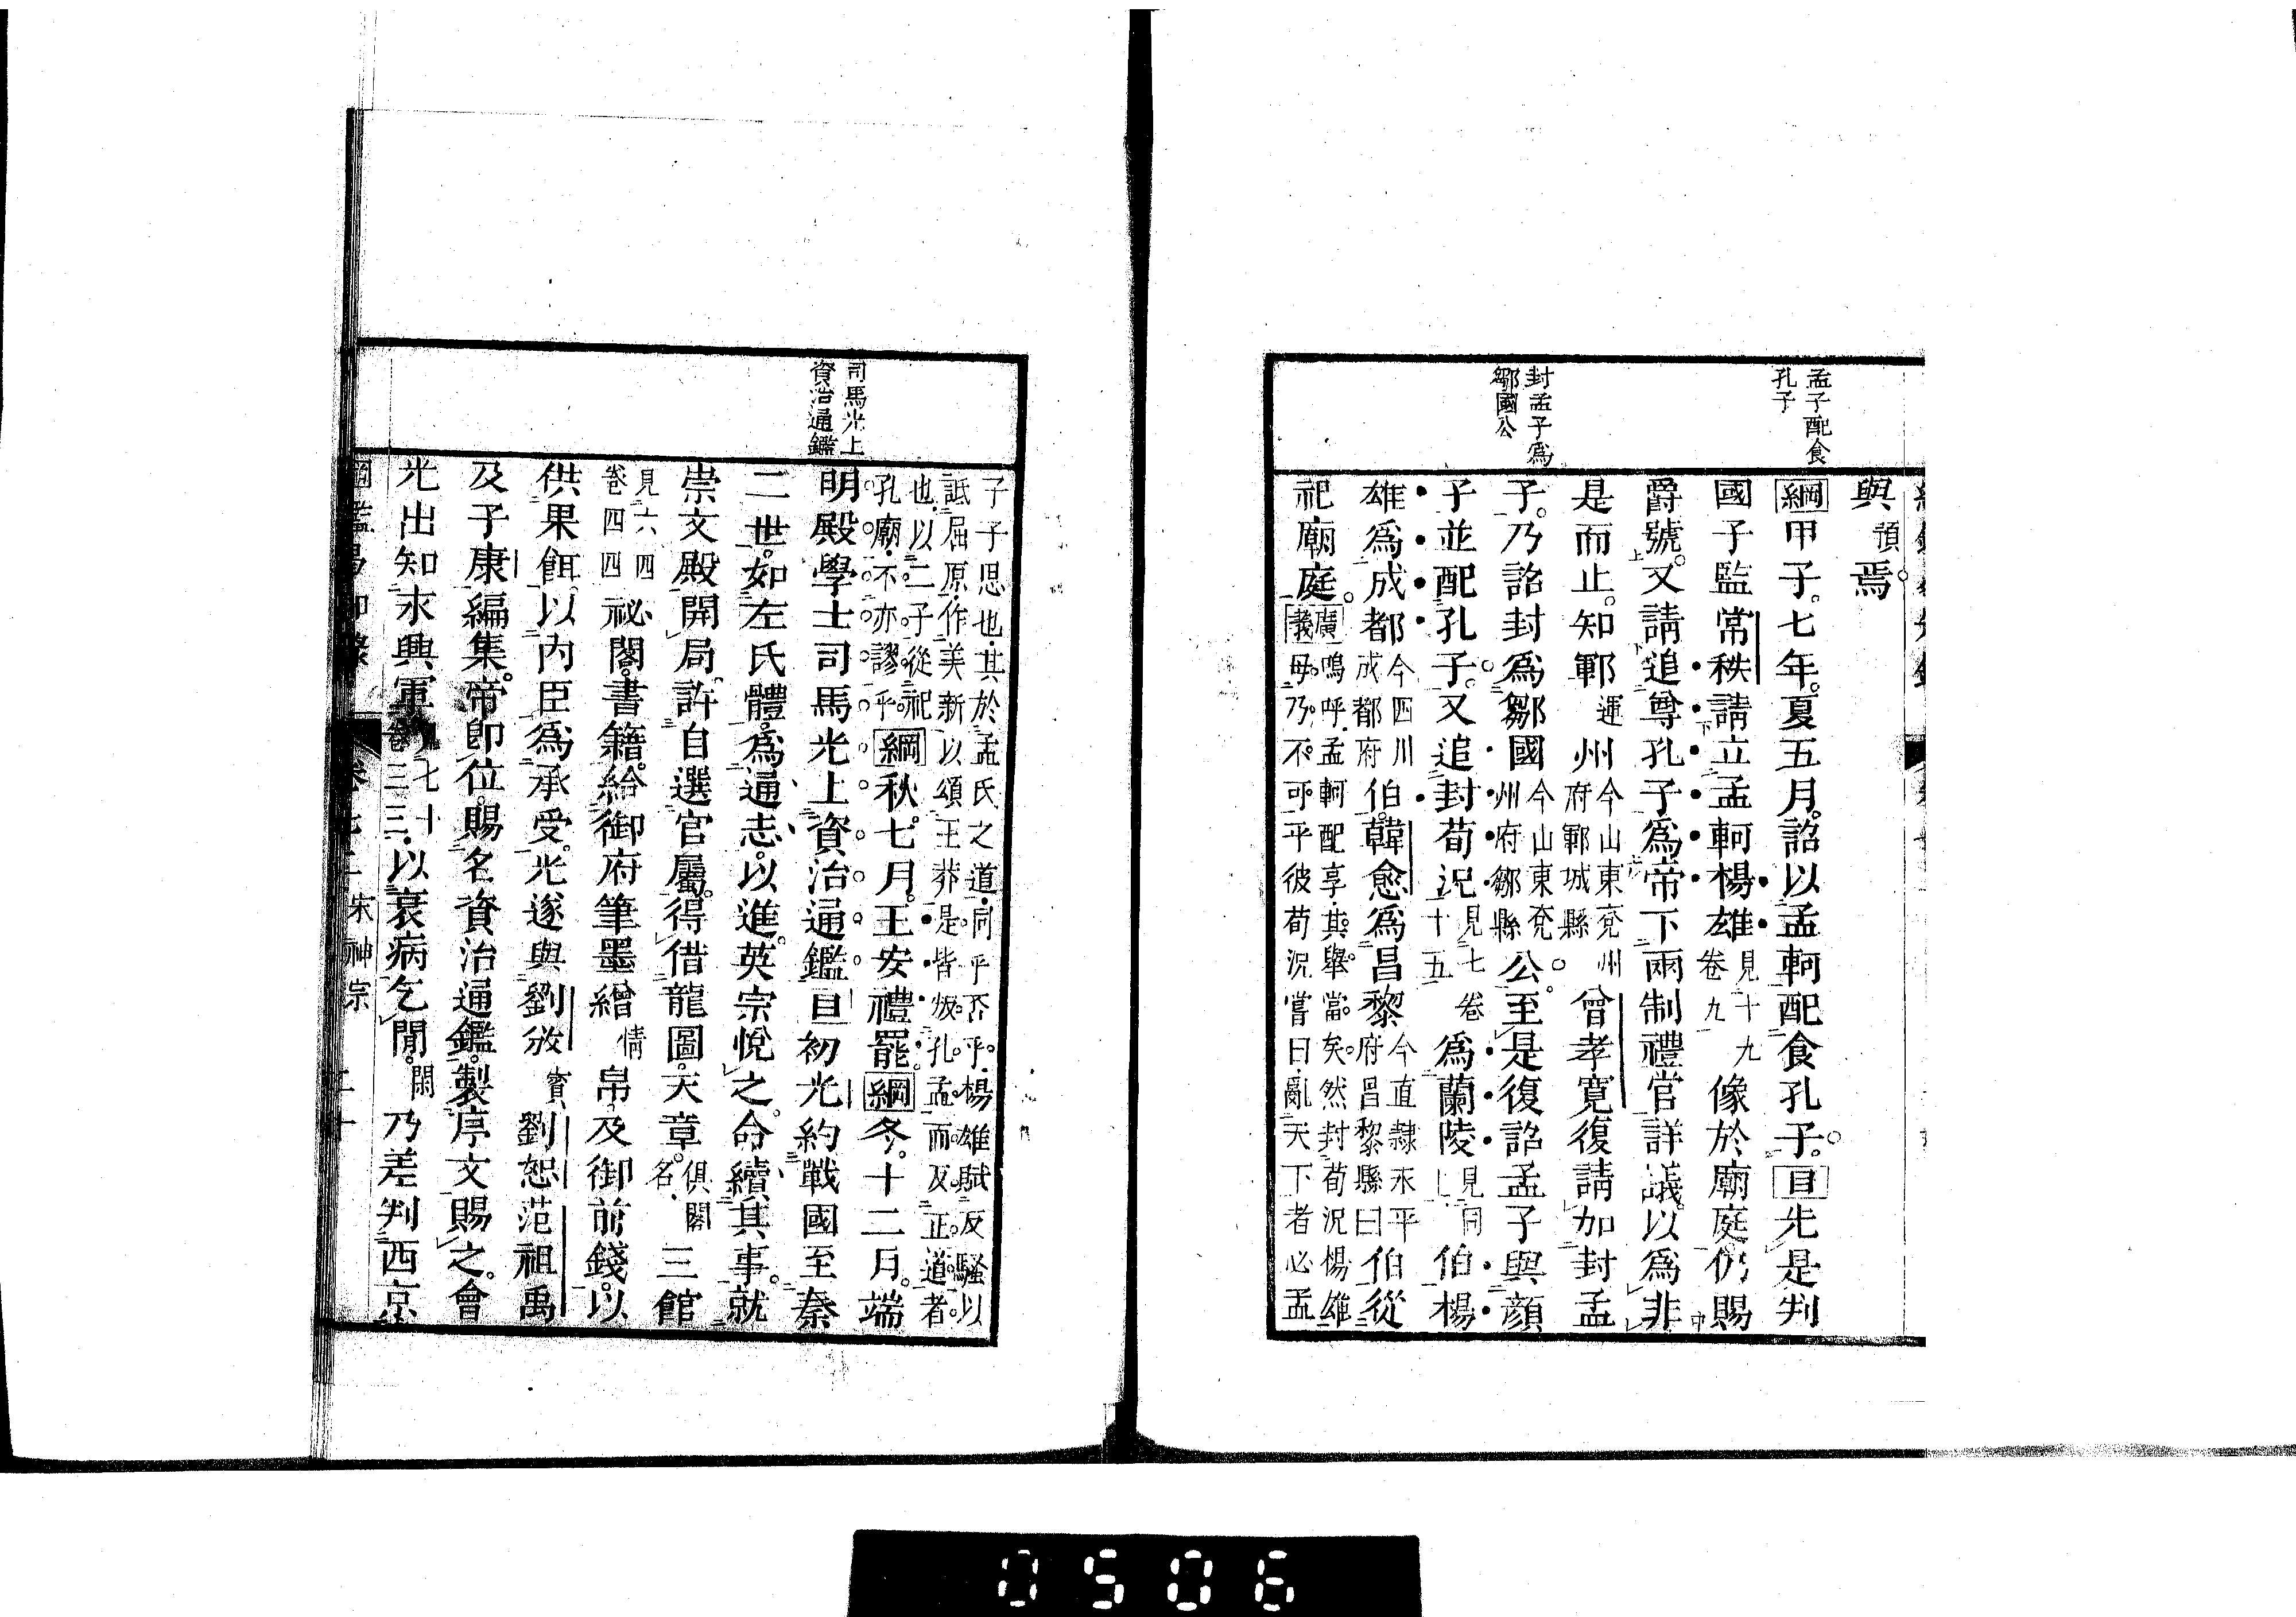 孟子配食
孔子
封孟子爲
鄒國公
與預焉。
綱甲子。七年。夏五月。詔以孟軻配食孔子。目先是判
國子監常秩請立孟軻楊雄見十九卷九像於廟庭仍賜
爵號。又請追尊孔子爲帝下兩制禮官詳議。以爲非
是而止。知鄆運州今山東兗州府鄆城縣曾孝寬復請加封孟
子。乃詔封爲鄒國今山東兗州府鄒縣公。至是復詔孟子與顔
子並配孔子。又追封荀況見七卷十五爲蘭陵見同上伯楊
雄爲成都今四川成都府伯。韓愈爲昌黎今直隸永平府昌黎縣曰伯從
祀廟庭。廣義嗚呼。孟軻配享。其舉當矣。然封荀況楊雄
毋乃不可乎彼荀況嘗曰亂天下者必孟
司馬光上
資治通鑑
子子思也。其於孟氏之道。同乎否乎。楊雄賦反騷以
詆屈原。作美新以頌王莽。是皆叛孔孟而反正道者
也。以二子從祀
孔廟。不亦謬乎。綱秋。七月。王安禮罷綱冬。十二月。端
明殿學士司馬光上資治通鑑目初光約戰國至秦
二世。如左氏體。爲通志。以進。英宗悅之。命續其事。就
崇文殿開局。許自選官屬。得借龍圖。天章。俱閣名。三館
見六四卷四四祕閣。書籍。給御府筆墨繒情帛。及御前錢。以
供果餌。以內臣爲承受。光遂與劉攽賓劉恕范祖禹
及子康編集。帝卽位。賜名資治通鑑。製序文賜之。會
光出知永興軍見七十卷三三。以衰病乞閒。閑乃差判西京
卷七十二宋神宗 二十
0506